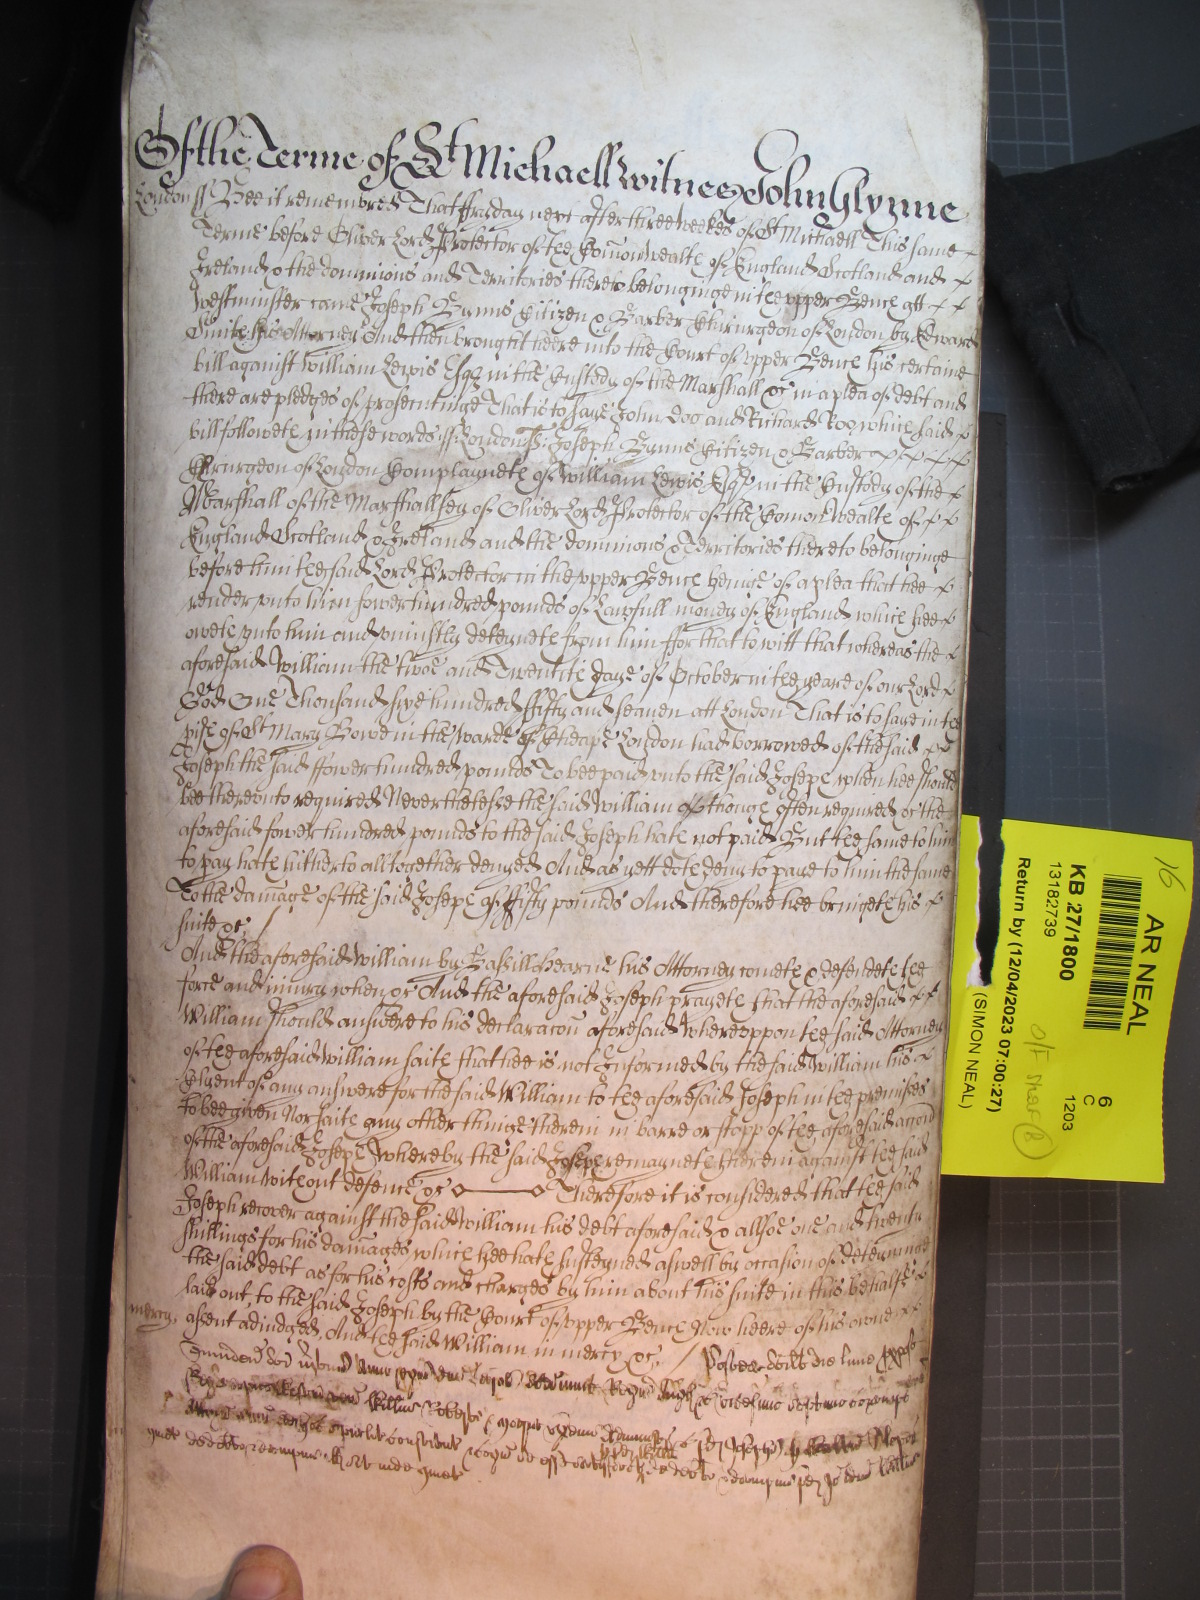 Of the Terme of St Michaell Witnes John Glynne
London ss Bee it remembred That ffryday next after three weekes of St Michaell This same
Terme before Oliver Lord Protector of the Comonwealth of England Scotland and
Ireland & the dominions and Territories thereto belonginge in the upper Bench att
Westminster came Joseph Bynns Citizen & Barber Chirurgeon of London by Edward
his Attorney And then brought heere into the Court of upper Bench his certaine
bill against William Lewis Esqr in the Custody of the Marshall &c in a plea of debt and
there are pledges of prosecutinge That is to saye John Doo and Richard Roo which said
bill followeth in these words ss London ss Joseph Bynns Citizen & Barber
Chirurgeon of London Complayneth of William Lewis Esqr in the Custody of the
Marshall of the Marshallsey of Oliver Lord Protector of the Comonwealth of
England Scotland & Ireland and the dominions & Territories thereto belonginge
before him the said Lord Protector in the upper Bench beinge of a plea that hee
render unto him fower hundred pounds of Lawfull money of England which hee
oweth unto him and uniustly deteyneth from him ffor that to witt that whereas the
aforesaid William the twoe and Twentith daye of October in the yeare of our Lord
God One Thousand sixe hundred ffifty and seaven att London That is to saye in the
pish of St Mary Bowe in the warde of Cheape London had borrowed of the said
Joseph the said ffower hundred pounds To bee paid unto the said Joseph when hee should
bee thereunto required Neverthelesse the said William although often required &c the
aforesaid fower hundred pounds to the said Joseph hath not paid But the same to him
to pay hath hitherto alltogether denyed And as yett doth deny to paye to him the same
To the damage of the said Joseph of ffifty pounds And therefore hee bringeth his
suite &c
And the aforesaid William by Bassill Hearne his Attorney cometh & defendeth the
force and iniury when &c And the aforesaid Joseph prayeth that the aforesaid
William should answere to his declaracon aforesaid Whereuppon the said Attorney
of the aforesaid William saith that hee is not Informed by the said William his
Clyent of any answere for the said William to the aforesaid Joseph in the premises
to bee given Nor saith any other thinge therein in barre or stopp of the aforesaid accon
of the aforesaid Joseph whereby the said Joseph remayneth therein against the said
William without defence &c Therefore it is considered that the said
Joseph recover against the said William his debt aforesaid & allsoe one and twenty
shillings for his damages which hee hath susteyned aswell by occasion of deteyninge
the said debt as for his costs and charges by him about his suite in this behalfe
laid out, to the said Joseph by the Court of upper Bench Now heere of his owne
mercy. assent adiudged, And the said William in mercy &c
16
AR NEAL
KB 27/1800
13182739
Return by (12/04/2023 07:00:27)
(SIMON NEAL)
6
C
1203